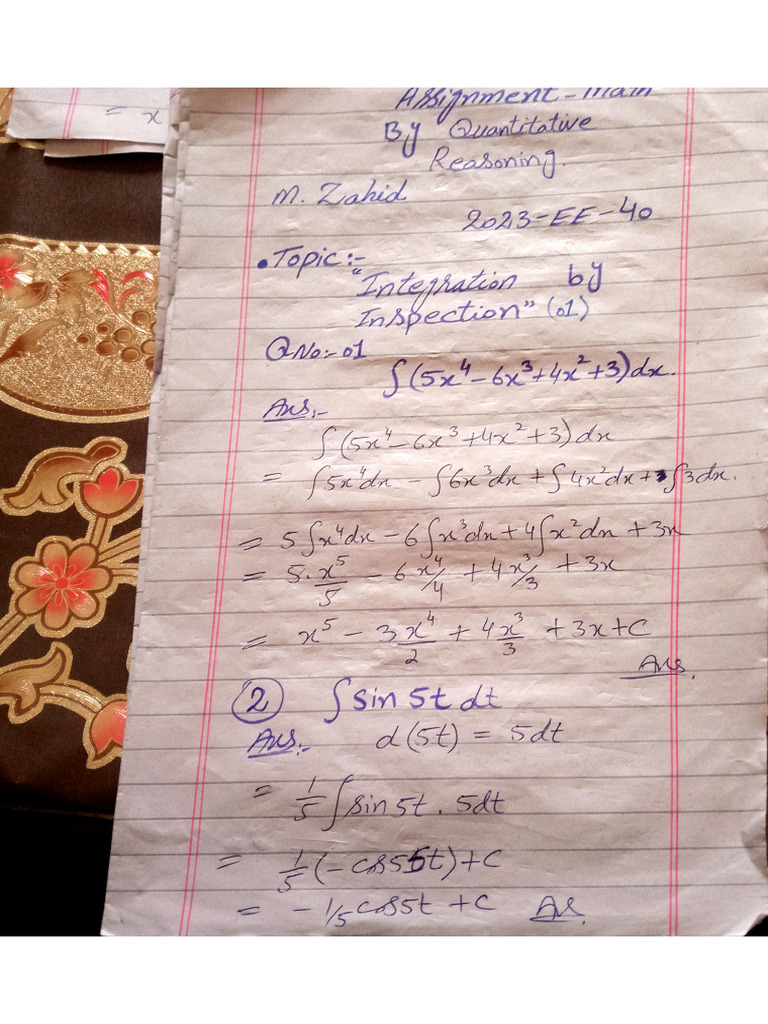 = x
Assignment - Math
By Quantitative
Reasoning.
M. Zahid
2023-EE-40
• Topic:-
"Integration by
Inspection" (01)
Q No:-01
∫(5x⁴-6x³+4x²+3)dx.
Ans:-
∫(5x⁴-6x³+4x²+3)dx
= ∫5x⁴dx - ∫6x³dx + ∫4x²dx + ∫3dx.
= 5∫x⁴dx - 6∫x³dx + 4∫x²dx + 3x
= 5·x⁵/5 - 6x⁴/4 + 4x³/3 + 3x
= x⁵ - 3x⁴/2 + 4x³/3 + 3x + C
Ans.
② ∫sin 5t dt
Ans:- d(5t) = 5dt
= 1/5 ∫sin5t . 5dt
= 1/5 (-cos5t)+C
= -1/5 cos5t + C Ans.